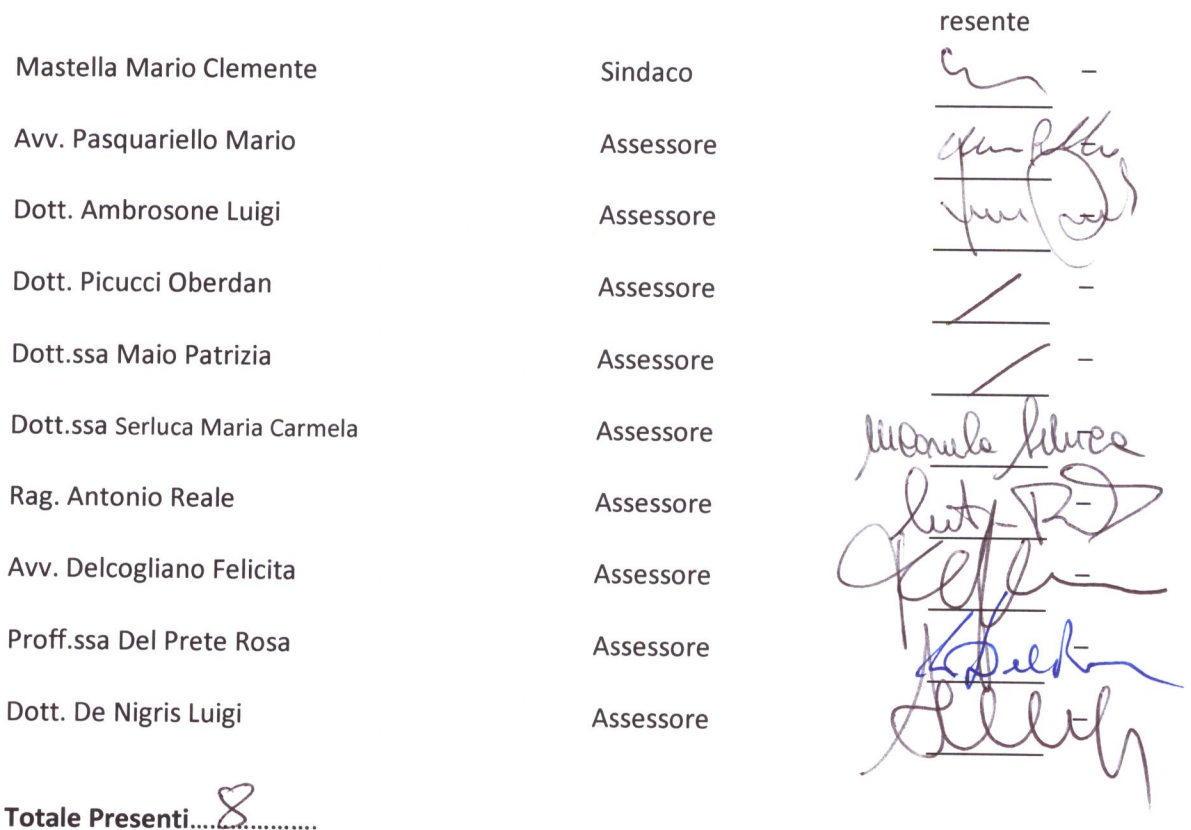 resente
Mastella Mario Clemente Sindaco –
Avv. Pasquariello Mario Assessore
Dott. Ambrosone Luigi Assessore
Dott. Picucci Oberdan Assessore / –
Dott.ssa Maio Patrizia Assessore / –
Dott.ssa Serluca Maria Carmela Assessore
Rag. Antonio Reale Assessore –
Avv. Delcogliano Felicita Assessore –
Proff.ssa Del Prete Rosa Assessore –
Dott. De Nigris Luigi Assessore –
Totale Presenti....8............